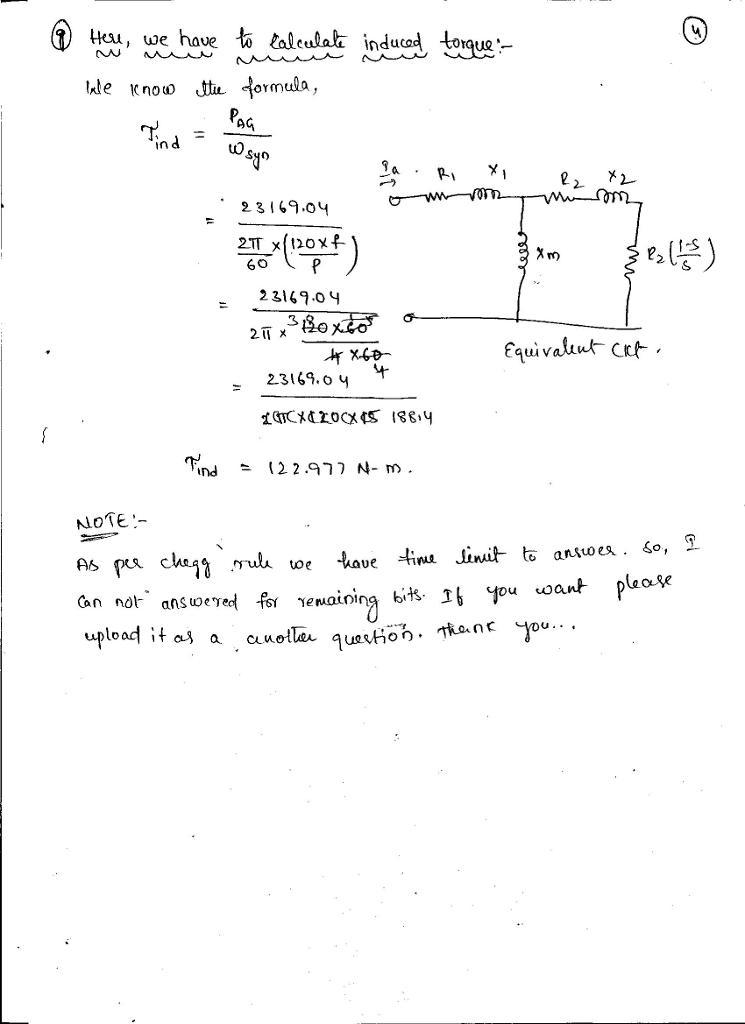 9 Here, we have to calculate induced torque:-
4
We know the formula,
Tind = PAG / Wsyn
= 23169.04 / (2π/60 × (120×f / P))
= 23169.04 / (2π × 120×60 / 4×60)
= 23169.04 / 188.4
Tind = 122.977 N-m.
Ia R1 X1 R2 X2
Xm R2(1-S/S)
Equivalent CKt.
NOTE:-
As per chegg rule we have time limit to answer. So, I
Can not answered for remaining bits. If you want please
upload it as a another question. thank you...